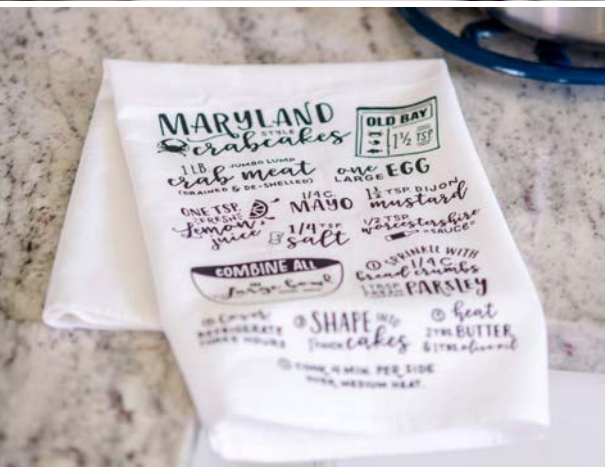 MARYLAND
STYLE
crabcakes
OLD BAY
1½ TSP
1 LB. JUMBO LUMP
crab meat
(DRAINED & DE-SHELLED)
one EGG
LARGE
ONE TSP.
FRESH
Lemon
juice
1/4 C.
MAYO
1½ TSP. DIJON
mustard
1/4 TSP
salt
1/2 TSP
worcestershire
"SAUCE"
COMBINE ALL
large bowl
SPRINKLE WITH
1/4 C.
bread crumbs
1 TBSP.
FRESH PARSLEY
cover
REFRIGERATE
HOURS
SHAPE INTO
cakes
heat
2 TBS. BUTTER
& 1 TBS. olive oil
COOK 4 MIN. PER SIDE
OVER MEDIUM HEAT.